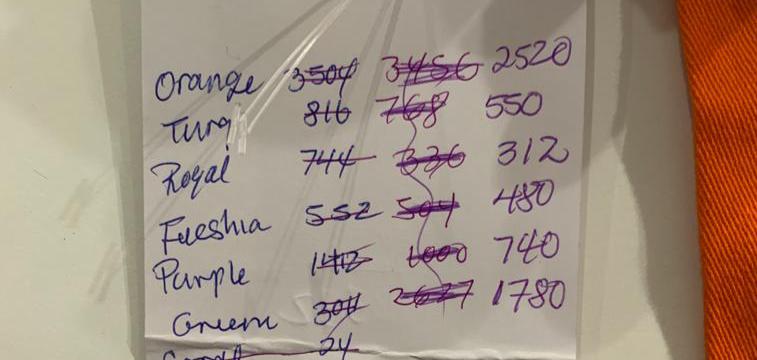 Orange 3504 3456 2520
Turq 816 768 550
Royal 744 336 312
Fueshia 552 504 480
Purple 1000 740
Green 304 1780
24